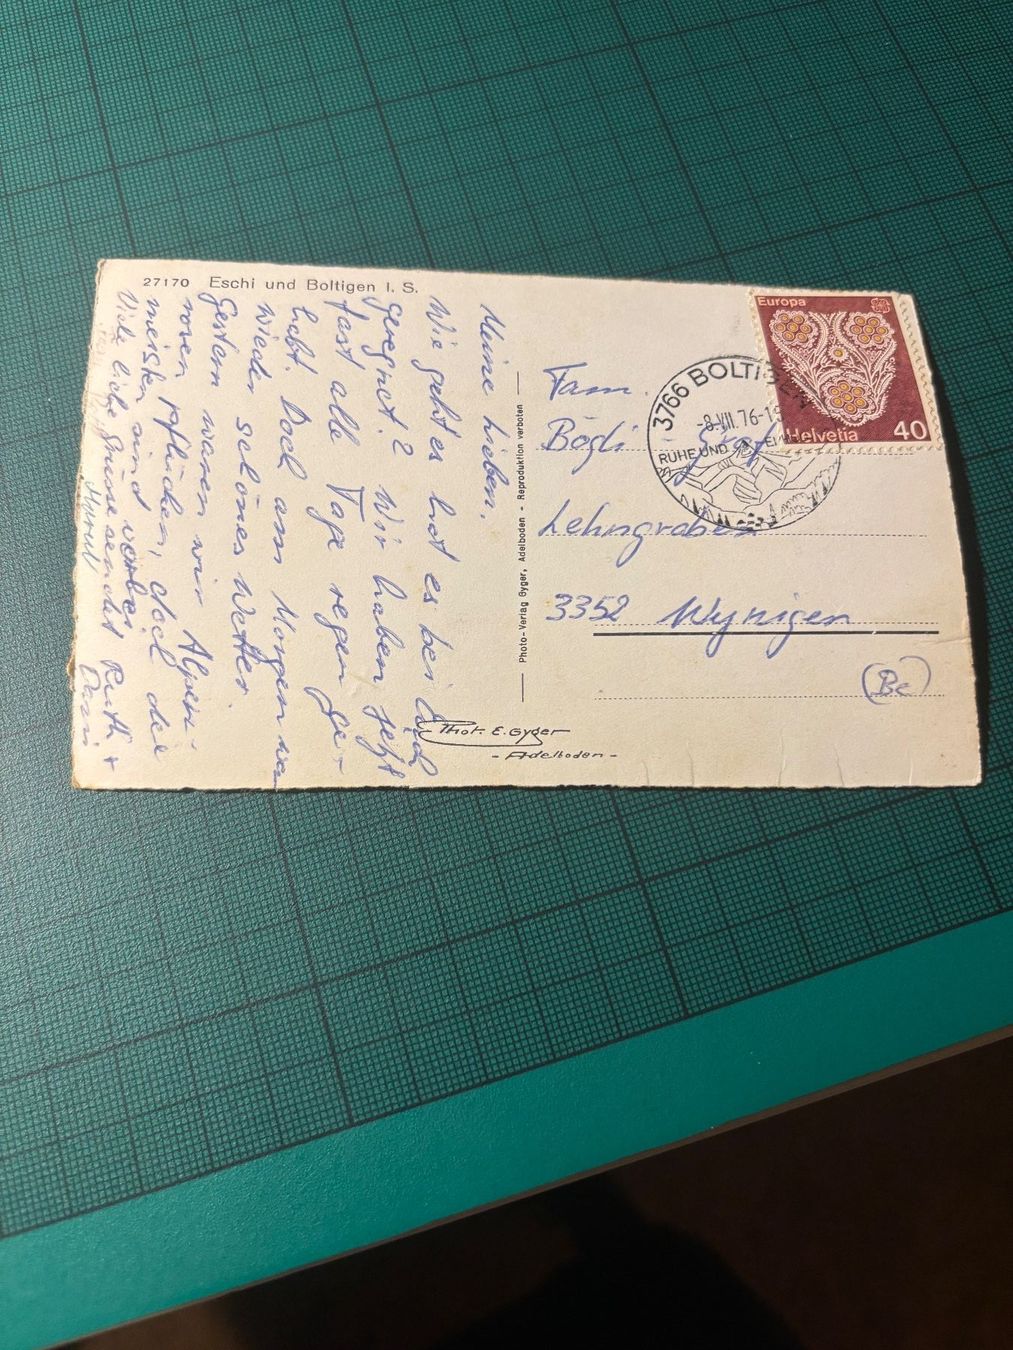 27170 Eschi und Boltigen i. S.
Meine lieben.
Wie geht es hat es bei Euch
geregnet? Wir haben jetzt
fast alle Tage regen ge-
habt. Doch am Morgen war
wieder schönes Wetter.
Gestern waren wir Alpen-
rosen pflücken, doch die
meisten sind vorbei
Viele liebe Grüsse sendet Ruth +
Photo-Verlag Gyger, Adelboden - Reproduktion verboten
Phot. E. Gyger
- Adelboden -
Europa
Helvetia 40
3766 BOLTIGEN
-8.VII.76-1
RUHE UND
Fam.
Bögli - Graf
Lehngraben
3352 Wynigen
(Be)